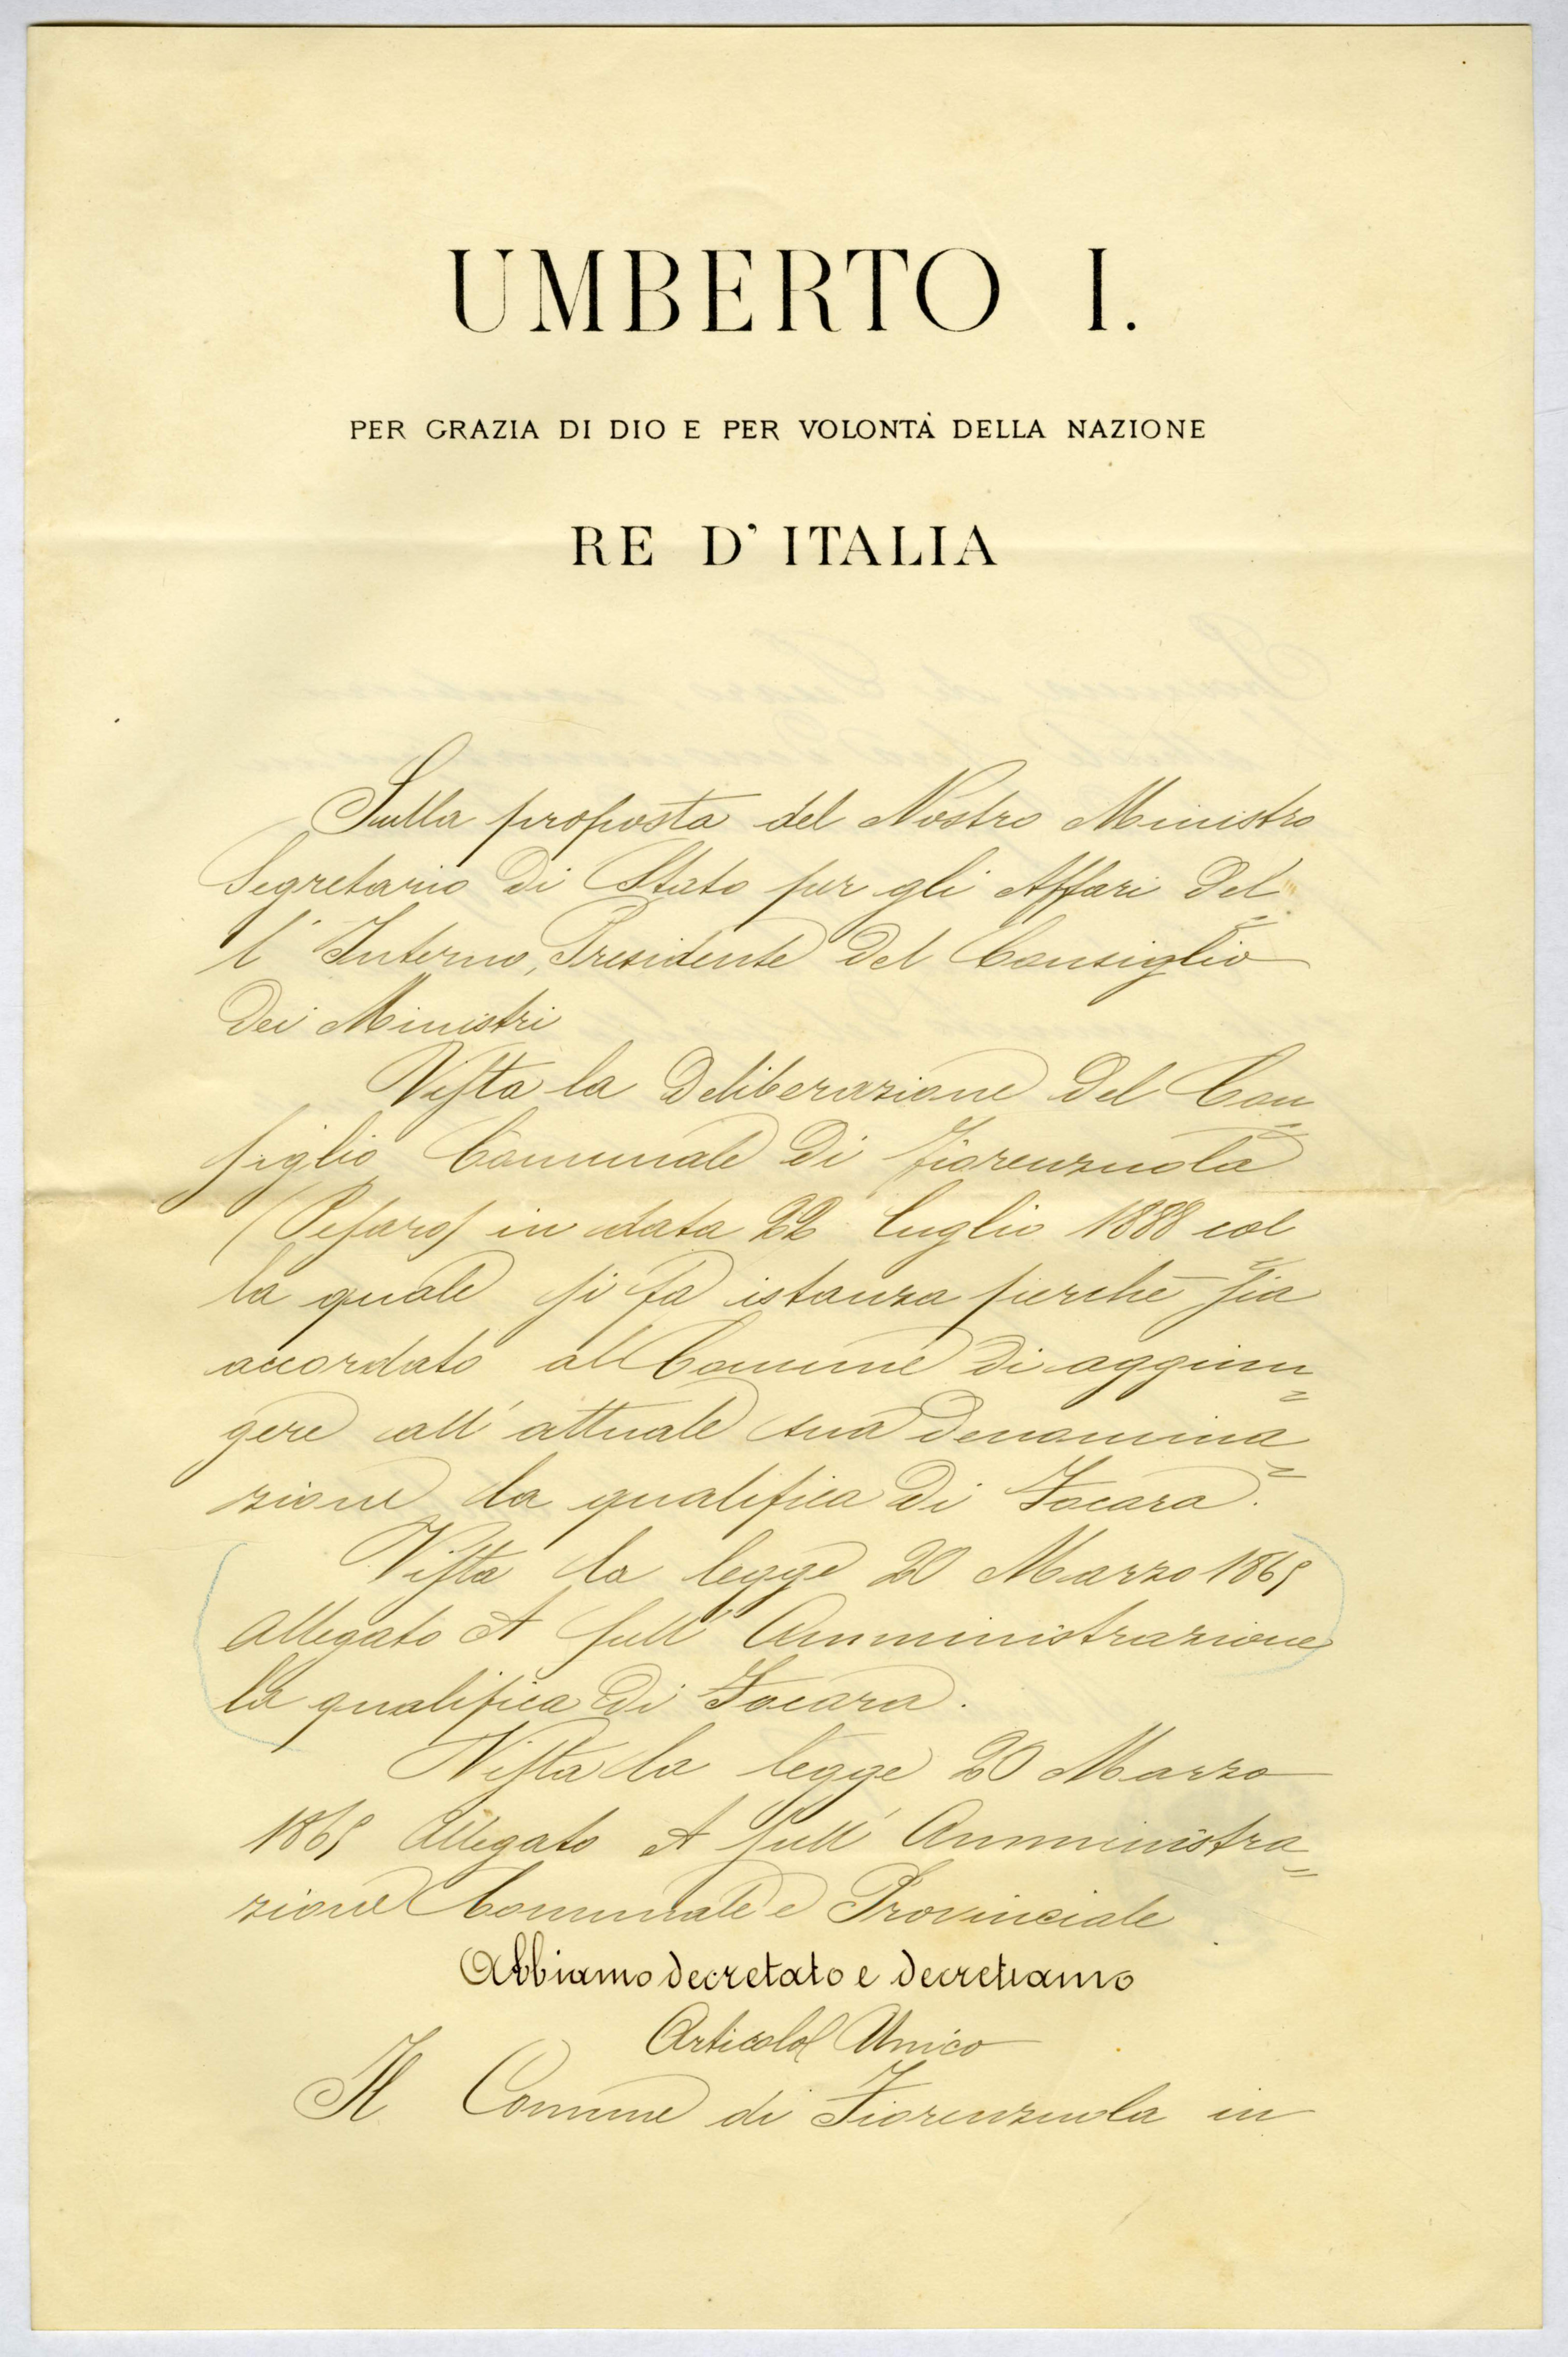 UMBERTO I.
PER GRAZIA DI DIO E PER VOLONTÀ DELLA NAZIONE
RE D'ITALIA
Sulla proposta del Nostro Ministro
Segretario di Stato per gli Affari del=
l'Interno, Presidente del Consiglio
dei Ministri
Vista la deliberazione del Con=
siglio Comunale di Fiorenzuola
(Pesaro) in data 22 luglio 1888 col=
la quale si fa istanza perchè sia
accordato al Comune di aggiun=
gere all'attuale sua denomina=
zione la qualifica di Focara.
Vista la legge 20 Marzo 1865
Allegato A sull'Amministrazione
la qualifica di Focara.
Vista la legge 20 Marzo
1865 Allegato A sull'Amministra=
zione Comunale e Provinciale
Abbiamo decretato e decretiamo
Articolo Unico
Il Comune di Fiorenzuola in